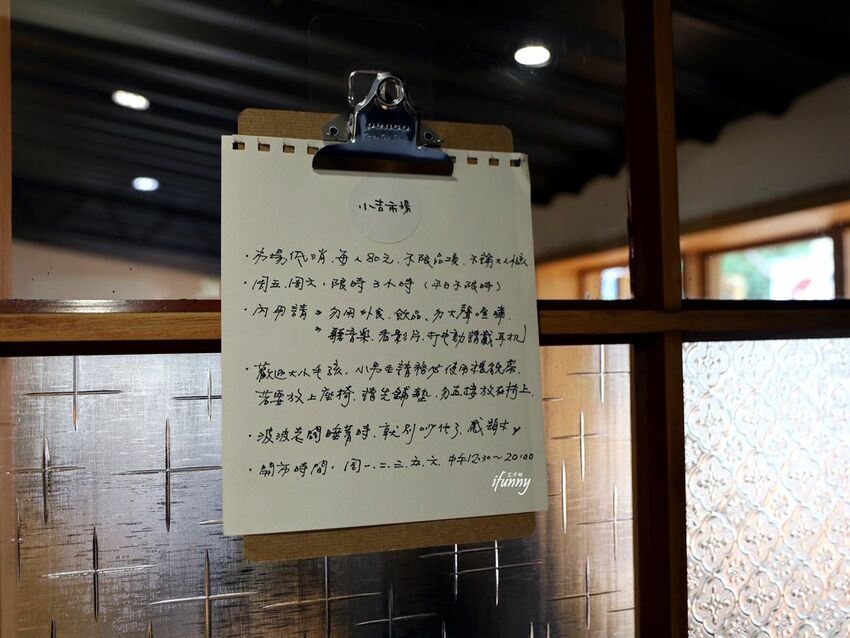 小吉市場
・市場低消,每人80元,不限品項,不論大人小孩
・周五、周六,限時3小時（平日不限時）
・內用請 勿用外食、飲品,勿大聲喧嘩,
聽音樂、看影片、打電動請戴耳机
・歡迎大小毛孩,小男生請務必使用禮貌帶,
若要放上座椅,請先鋪墊,勿直接放在椅上
・波波老闆睡著時,就別吵他了,感謝
・開市時間,周一、二、三、五、六、中午12:30～20:00
ifunny